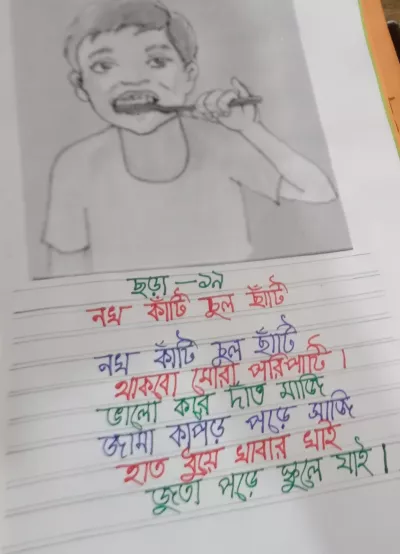 ছড়া - ১৯
নখ কাঁটি চুল ছাঁটি
নখ কাঁটি চুল ছাঁটি
থাকবো মোরা পরিপাটি।
ভালো করে দাঁত মাজি
জামা কাপড় পড়ে সাজি
হাত ধুয়ে খাবার খাই
জুতা পড়ে স্কুলে যাই।